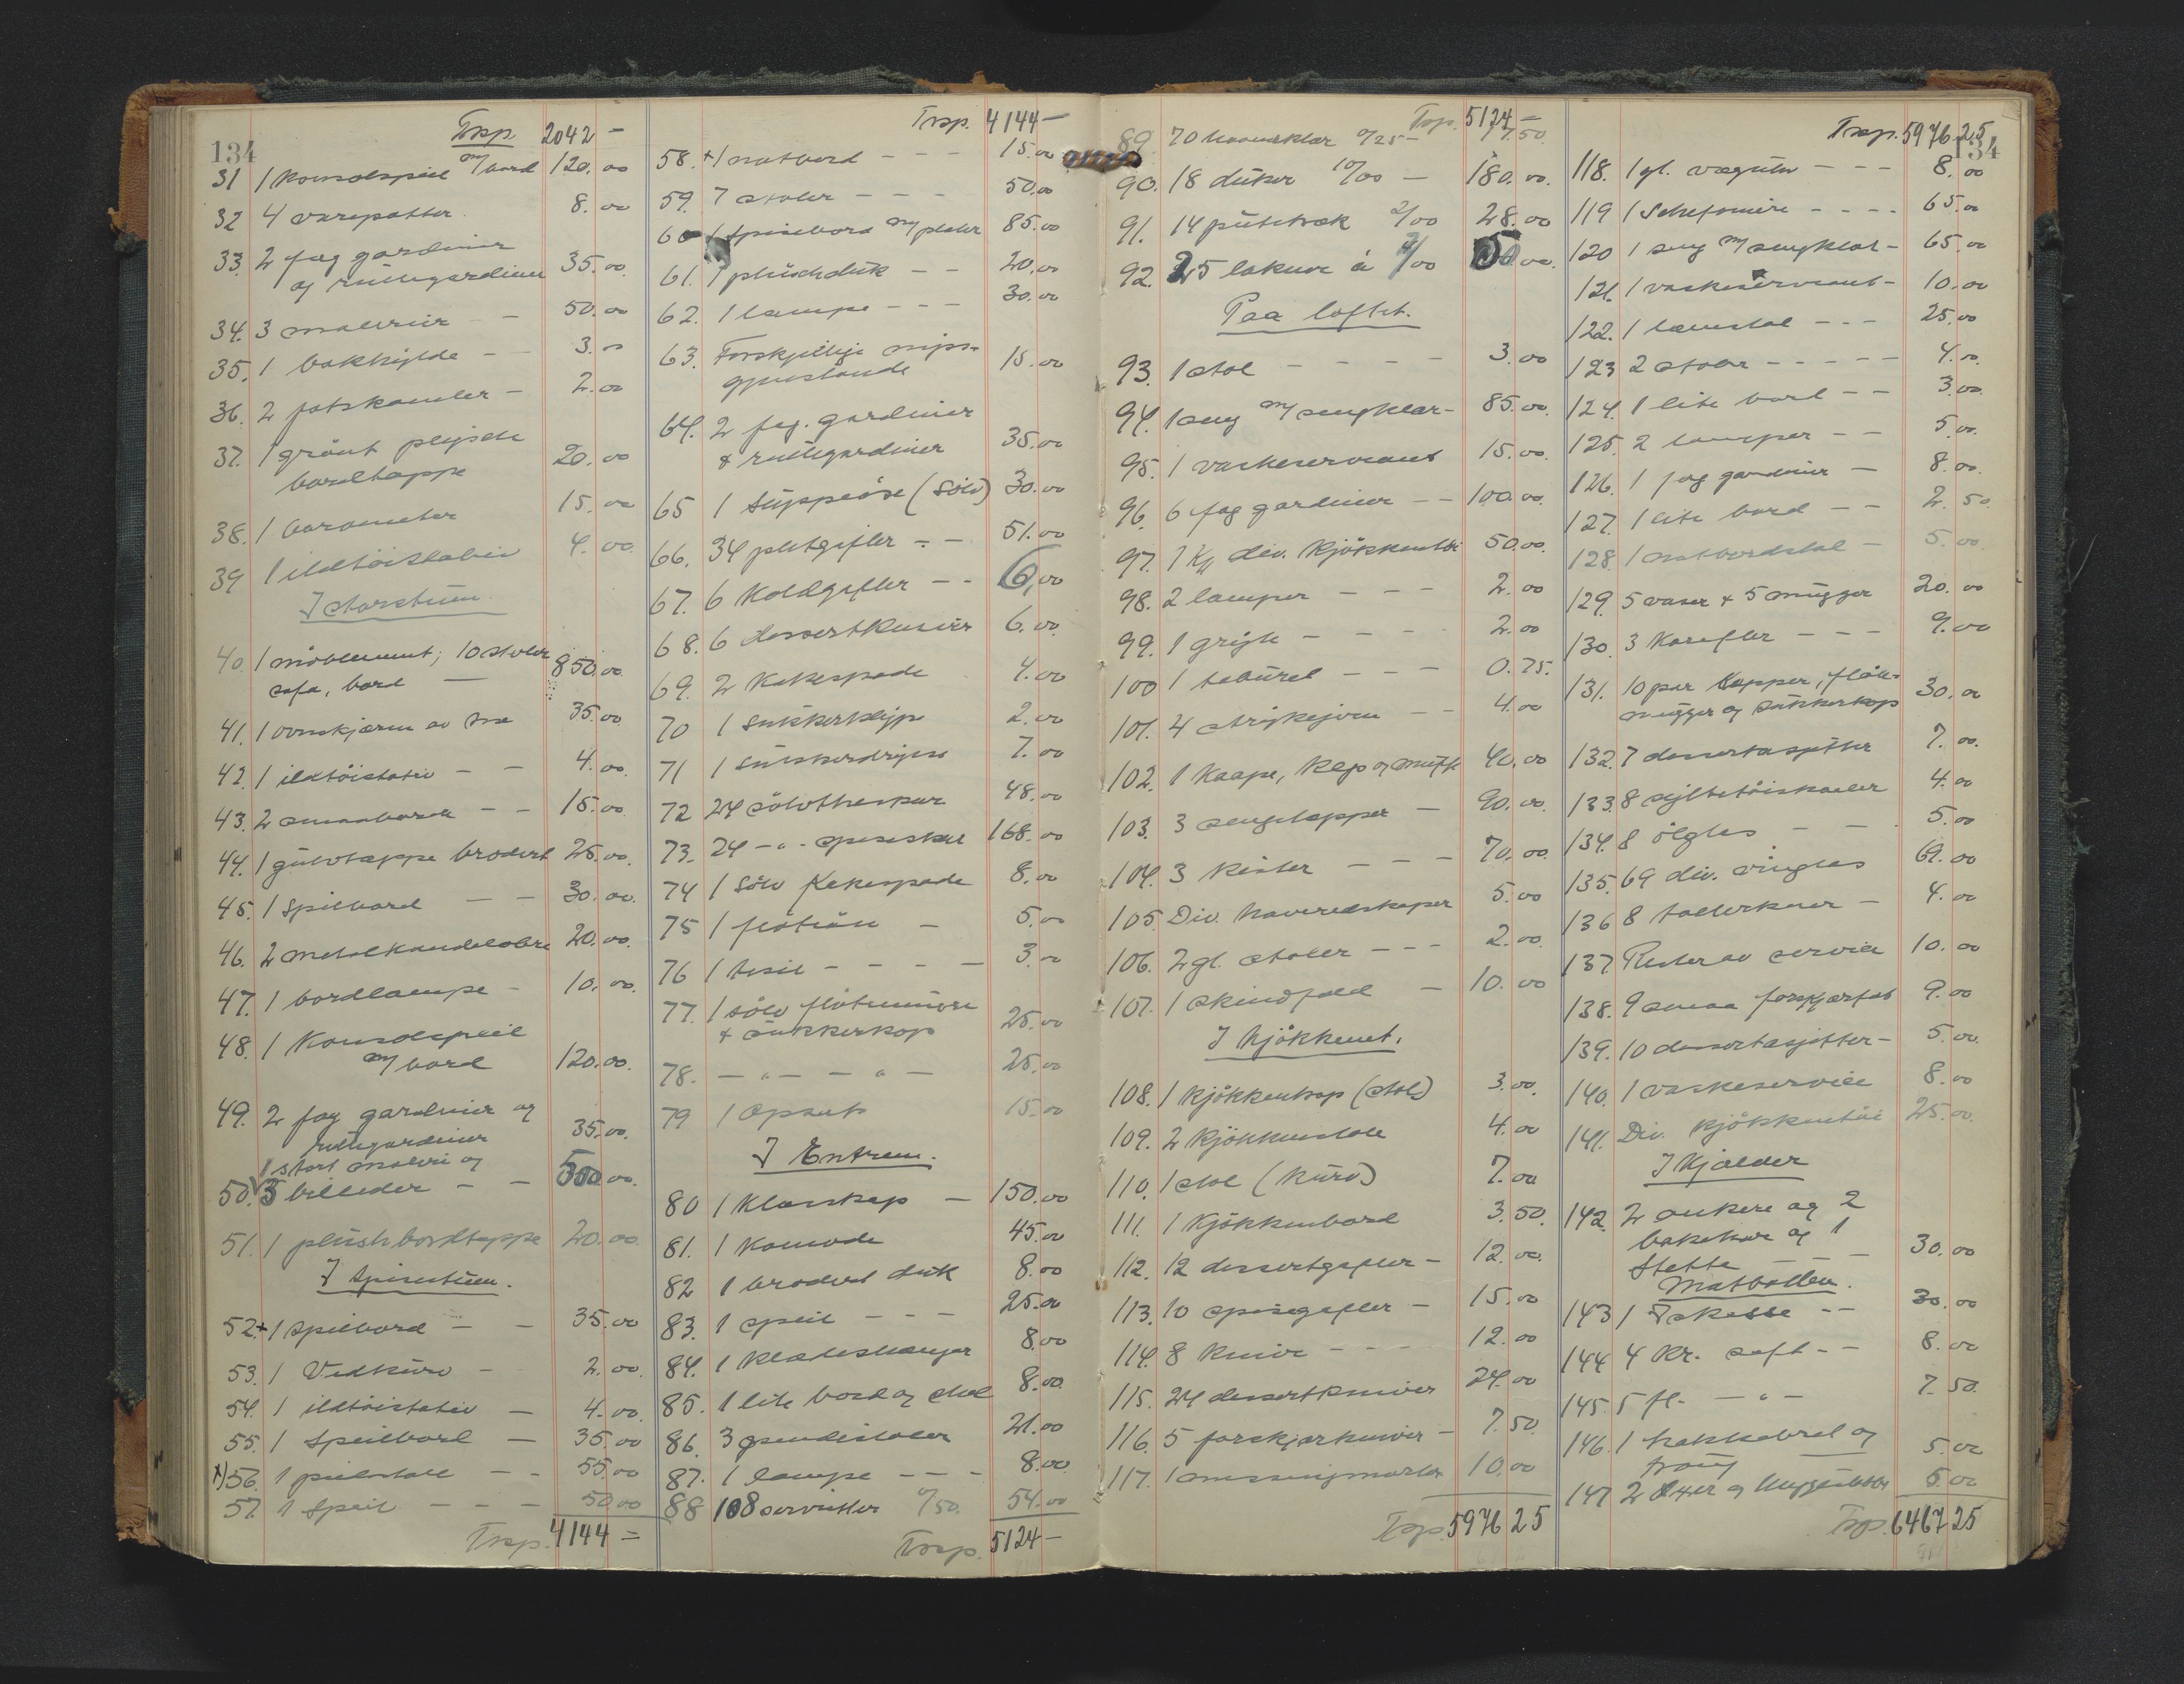 134
Trsp. 2042 -
31 1 konsolspeil m/ bord 120.00
32 4 varepotter 8.00
33. 2 fag gardiner
og rullegardiner 35.00
34. 3 malerier - 50.00
35. 1 bokhylde - 3.00
36. 2 fotskamler - 2.00
37. 1 grönt plysch
bordteppe 20.00
38. 1 barometer 15.00
39 1 ildtöistativ 4.00
I storstuen.
40. 1 möblement; 10 stoler
sofa, bord - 850.00
41. 1 ovnskjerm av tre 35.00
42. 1 ildtöistativ - - 4.00
43. 2 smaabord - - 15.00
44. 1 gulvteppe brodert 25.00
45. 1 Spilbord - - 30.00
46. 2 metalkandelabre 20.00
47. 1 bordlampe - 10.00
48. 1 Konsolspeil
m/ bord 120.00
49. 2 fag gardiner og
rullegardiner 35.00
1 stort maleri og
50. 5 billeder - - 500.00
51. 1 plüsh bordteppe 20.00
I Spisestuen.
52. + 1 spilbord - - 35.00
53. 1 Vedkurv - 2.00
54. 1 ildtöistativ - 4.00
55. 1 Speilbord - 35.00
+) 56. 1 pidestall - - 55.00
57. 1 Speil - - - 50.00
Trsp. 4144 =
Trsp. 4144 -
58. + 1 matbord - - - 15.00
59. 7 stoler - - - 50.00
60 1 Spisebord m/ plater 85.00
61. 1 plüschduk - - 20.00
62. 1 lampe - - - 30.00
63. Forskjellige nips-
gjenstande 15.00
64. 2 fag. gardiner
& rullegardiner 35.00
65 1 Suppeöse (Sölv) 30.00
66. 34 pletgafler - - 51.00
67. 6 Koldgafler - - 6.00
68. 6 dessertkniver 6.00
69. 2 Kakespade 4.00
70 1 Sukkerklype 2.00
71 1 Sukkerdrysse 7.00
72 24 sölvtheskeer 48.00
73. 24 - " - spiseskeer 168.00
74 1 Sölv Kakespade 8.00
75 1 flöteöse - 5.00
76 1 tesil - - - - 3.00
77. 1 sölv flötemugge
& sukkerkop 25.00
78. - " - - " - 25.00
79 1 Opsats 15.00
I Entreen.
80 1 Klæskap - 150.00
81. 1 Komode 45.00
82 1 brodert duk 8.00
83. 1 speil - - - 25.00
84. 1 klædeshenger 8.00
85. 1 lite bord og stol 8.00
86. 3 grindstoler 21.00
87. 1 lampe - - - 8.00
88 108 servietter 0/50. 54.00
Trsp. 5124 -
Trsp. 5124 -
89. 70 haandklær 0/25 - 17.50
90. 18 duker 10/00 - 180.00
91. 14 putetræk 2/00 28.00
92. 25 lakener à 2/00 50.00
Paa loftet.
93. 1 stol - - - - 3.00
94. 1 seng m/ sengklær - 85.00
95. 1 vaskeservant 15.00
96. 6 fag gardiner - - 100.00
97. 1 Kg div. Kjökkentöi 50.00
98. 2 lamper - - - 2.00
99. 1 gryte - - - - 2.00
100 1 taburet - - - 0.75.
101. 4 strykejern - - 4.00
102. 1 Kaape, Kep og muffe 40.00
103. 3 sengetepper - 90.00
104. 3 kister - - - 70.00
105. Div. haveredskaper 5.00
106. 2 gl. stoler - - - 2.00
107. 1 skindfeld - 10.00
I Kjökkenet.
108. 1 Kjökkentrap (stol) 3.00
109. 2 Kjökkenstole 4.00
110. 1 stol (kurv) 7.00
111. 1 Kjökkenbord 3.50
112. 12 dessertgafler - 12.00
113. 10 spisegafler - 15.00
114. 8 Knive - - - 12.00
115. 24 dessertkniver 24.00
116. 5 forskjærkniver - 7.50
117. 1 messingmorter 10.00
Trsp. 5976 25
Trsp. 5976.25
134
118. 1 gl. vægur - - - 8.00
119 1 Schefonière - - - - 65.00
120 1 seng m/ sengklær - 65.00
121. 1 vaskeservant - 10.00
122. 1 lænestol - - - 25.00
123 2 stoler - - - - - 4.00
124. 1 lite bord - - 3.00
125. 2 lamper - - 5.00
126. 1 fag gardiner - 8.00
127. 1 lite bord - - 2.50
128. 1 matbordstol - 5.00
129. 5 vaser & 5 mugger 20.00
130. 3 Karafler - - - 9.00
131. 10 par kopper, flöte-
mugger og sukkerkop 30.00
132. 7 dessertasjetter 7.00
133. 8 syltetöiskaaler 4.00
134. 8 ölglas - - 5.00
135. 69 div. vinglas 69.00
136 8 tallerkener - 4.00
137. Rester av servicer 10.00
138. 9 smaa forskjærfat 9.00
139. 10 dessertasjetter - 5.00
140. 1 vaskeservice 8.00
141. Div. Kjökkentöi 25.00
I Kjælder
142. 2 ankere og 2
bakekar og 1
Stette - - 30.00
Matboden.
143 1 Iskasse - - 30.00
144 4 Kr. saft - - 8.00
145. 5 fl. - " - 7.50
146. 1 hakkebret og
traug 5.00
147 2 økser og huggestabbe 5.00
Trsp. 6467 25